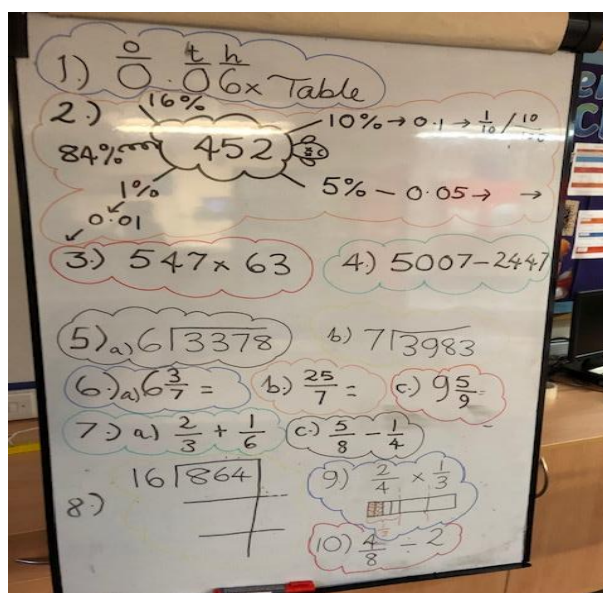 o t h
1.) 0.06x Table
2.) 16%
452
10% → 0.1 → 1/10 / 10/100
84%
1%
0.01
5% – 0.05 → →
3.) 547 x 63
4.) 5007-2447
5) a) 6⟌3378
b) 7⟌3983
6.) a) 6 3/7 =
b.) 25/7 =
c.) 9 5/9 =
7.) a) 2/3 + 1/6
c.) 5/8 - 1/4
8.) 16⟌864
9) 2/4 x 1/3
10) 4/8 ÷ 2